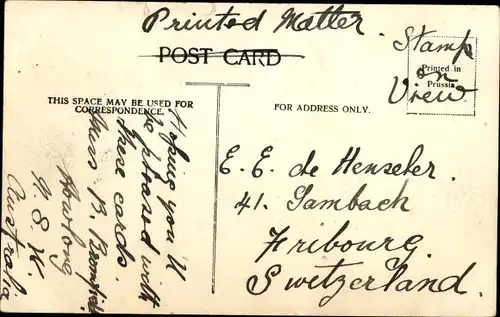 Printed Matter.
POST CARD
Stamp
on
View
Printed in
Prussia
THIS SPACE MAY BE USED FOR
CORRESPONDENCE.
FOR ADDRESS ONLY.
Hoping you'll
be pleased with
these cards.
Miss B.
Howlong
N.S.W
Australia
E. E. de Henseler.
41. Jambach
Fribourg.
Switzerland.